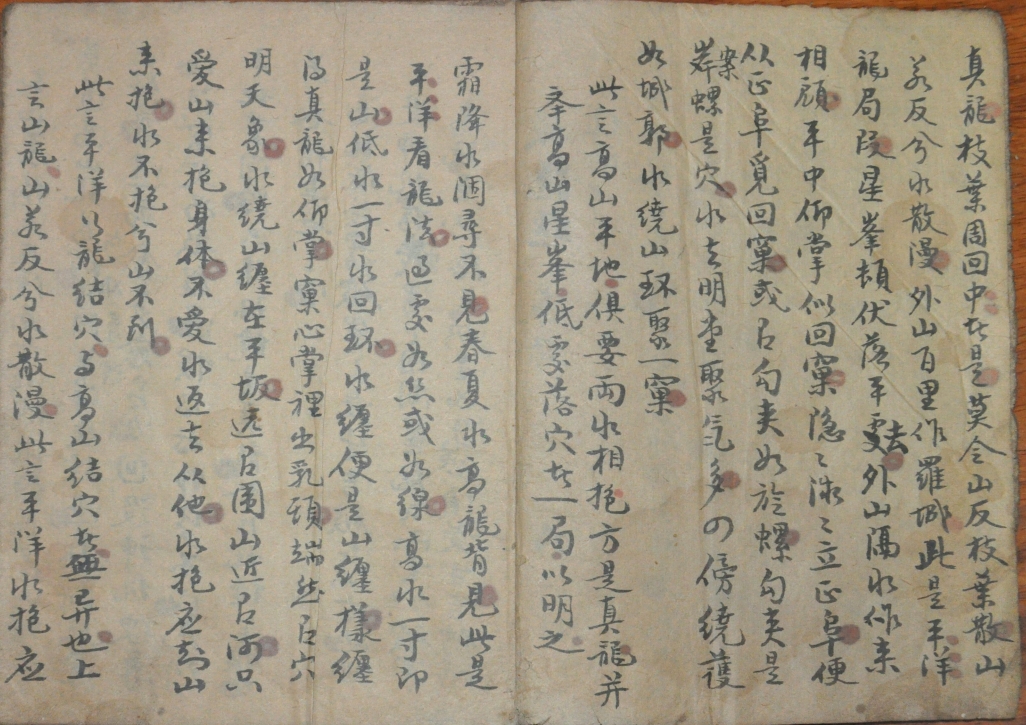 真龍枝葉周回中也是莫令山反枝葉散山
若反兮水散漫外山百里作羅城此是平洋
龍局段星峯頓伏落平處去外山隔水作来
相顧平中仰掌似回窠隐々微々立正阜便
从正阜覓回窠或占勾夹如於螺勾夹是
案螺是穴水去明堂聚气多四傍繞護
如城郭水繞山环聚一窠
此言高山平地俱要两水相抱方是真龍并
夆高山星峯低處落穴也一局以明之
霜降水涸尋不見春夏水高龍背見此是
平洋看龍法过處如丝或如線高水一寸即
是山低水一寸水回环水纏便是山纏樣纏
得真龍如仰掌窠心掌裡出乳頭端然占穴
明天象水繞山纏在平坂远占圍山近占河只
愛山来抱身体不愛水返去从他水抱应知山
来抱水不抱兮山不到
此言平洋以龍結穴与高山結穴也無异也上
言山龍山若反兮水散漫此言平洋水抱应